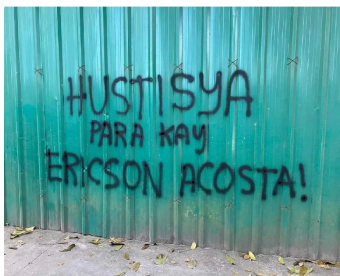 HUSTISYA
PARA KAY
ERICSON ACOSTA!